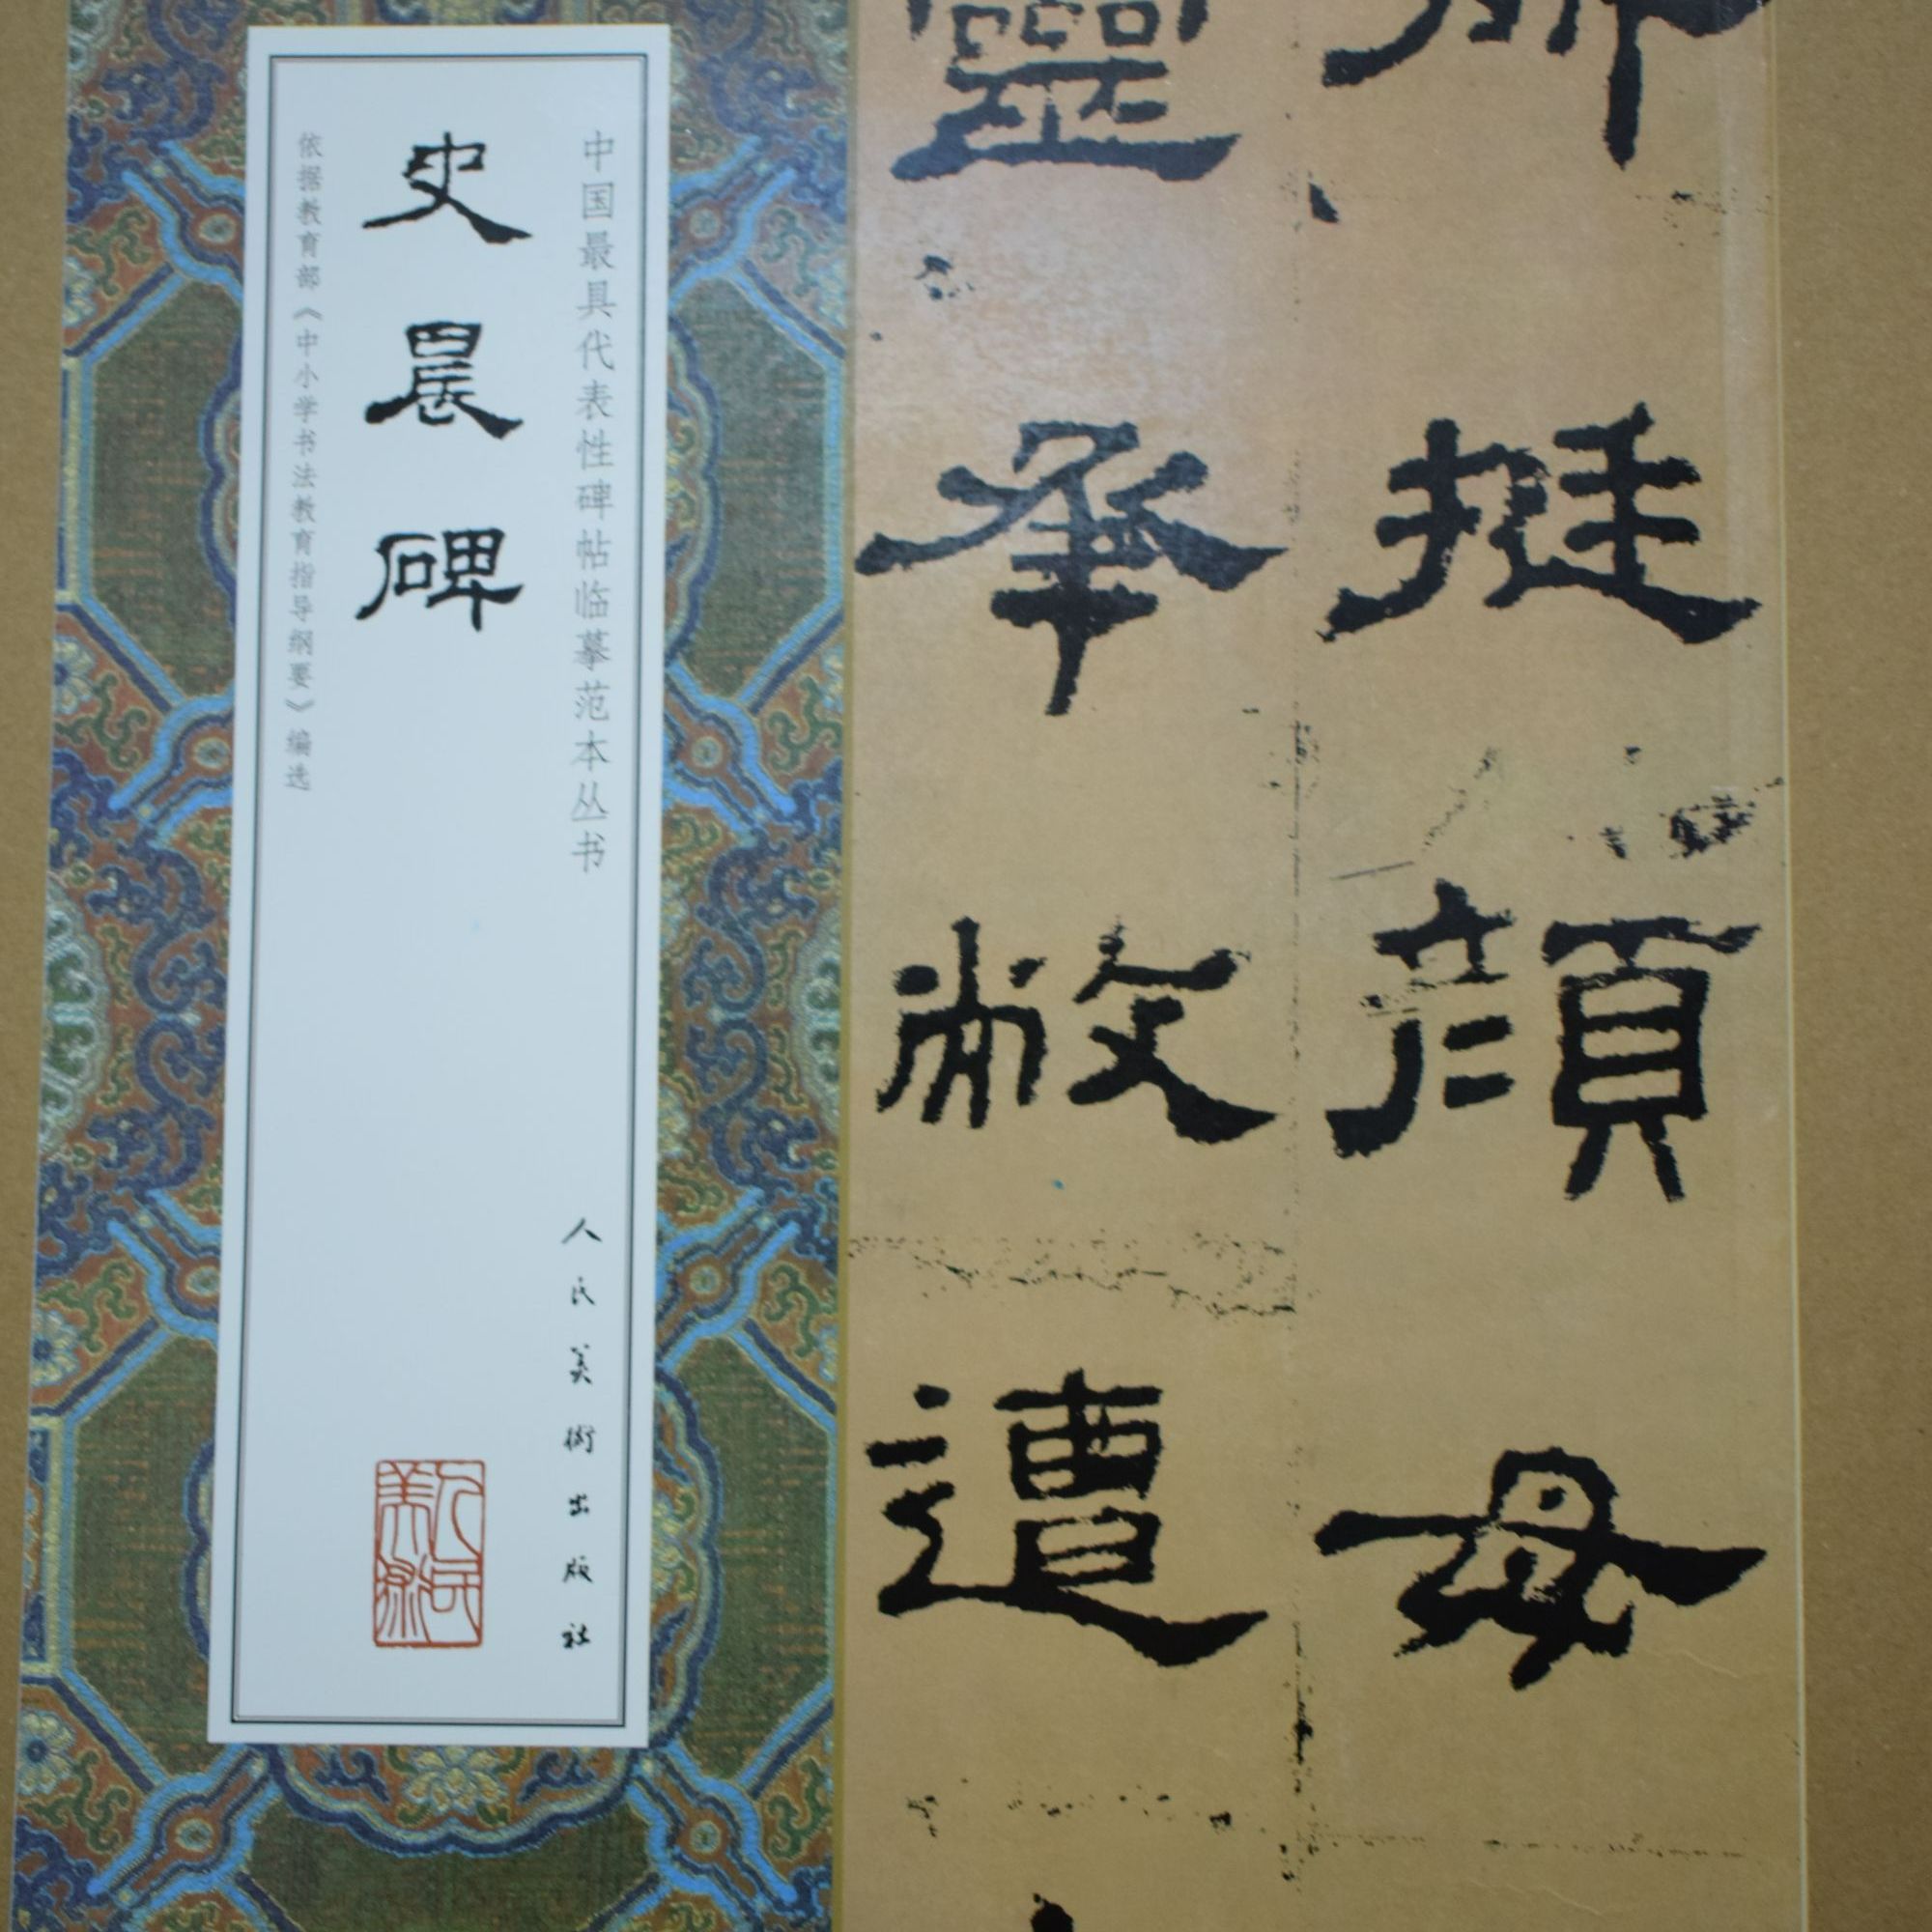 挺顏母
靈承敝遭
中国最具代表性碑帖临摹范本丛书
人民美術出版社
史晨碑
依据教育部《中小学书法教育指导纲要》编选